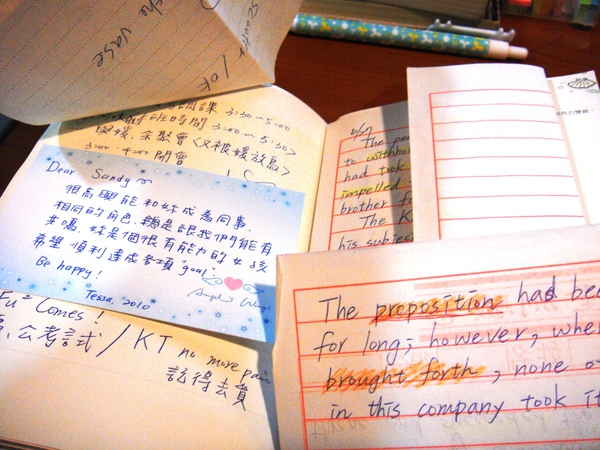 the vase
3:30~5:00
班時間 3:00~5:30
聚會〈又被媛放鳥〉
3:00-4:00 開會
Dear Sandy~
很高興能和妹成為同事,
相同的角色,總是讓我們能有
共鳴,妹是個很有能力的女孩
希望順利達成各項"goal".
Be happy!
Tessa, 2010
Angel's Wings
Comes!
公考試 / KT no more pain
記得去買
4/27
The
to withho
had took
impelled
brother fo
The K
his subjec
The proposition had bee
for long; however, when
brought forth, none o
in this company took it